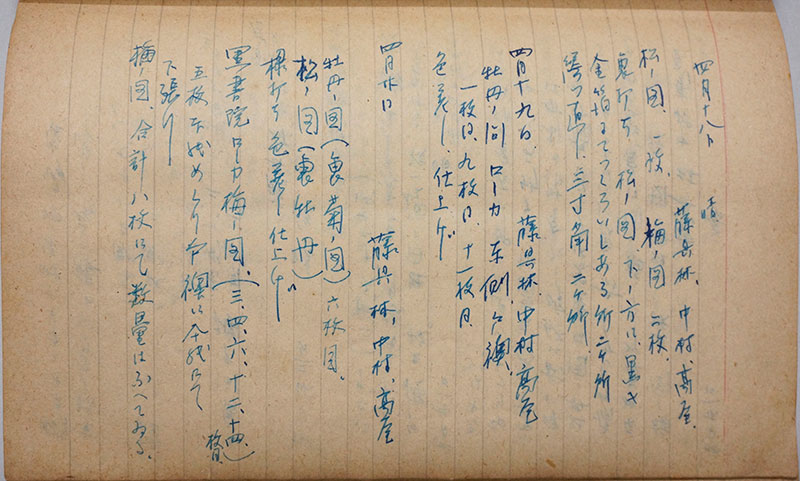 四月十八日 晴 藤具林、中村、高屋
松ノ図 一枚、梅ノ図 二枚、
裏打ち 松ノ図 下ノ方に、黒く
金箔にてつくろいしある所二ヶ所
繕つ直し 三寸角 二ヶ所
四月十九日、 藤具林、中村、高屋
牡丹ノ間 ローカ 东側ノ襖、
一枚目、九枚目、十一枚目
色差し、仕上ゲ
四月廿日 藤具林、中村、高屋
牡丹ノ図(裏菊ノ図)六枚目、
松ノ図(裏牡丹)
裸打ち 色差し 仕上げ
黒書院ローカ梅ノ図、(三、四、六、十二、十四、)
五枚 襖に本紙にて
下張り
梅ノ図、合計八枚にて数量は